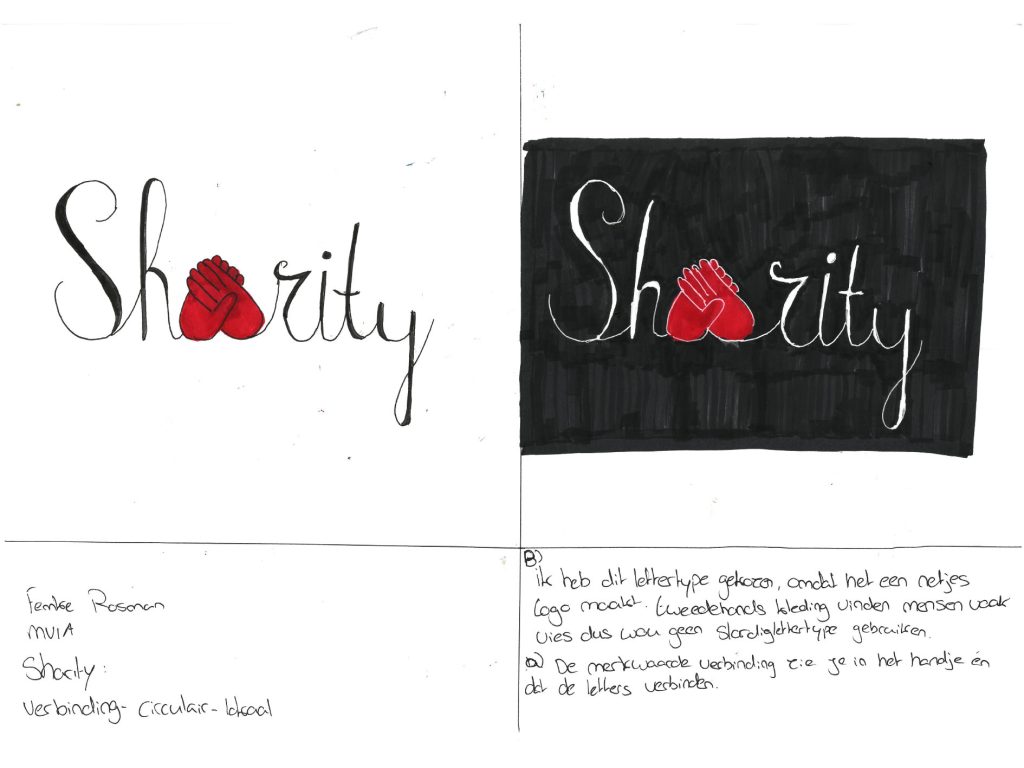 Sharity
Sharity
Femke Rosonan
MV1A
Sharity:
Verbinding - Circulair - lokaal
B)
ik heb dit lettertype gekozen, omdat het een netjes
logo maakt. tweedehands kleding vinden mensen vaak
vies dus wou geen slordiglettertype gebruiken.
a) De merkwaarde verbinding zie je in het handje én
dat de letters verbinden.